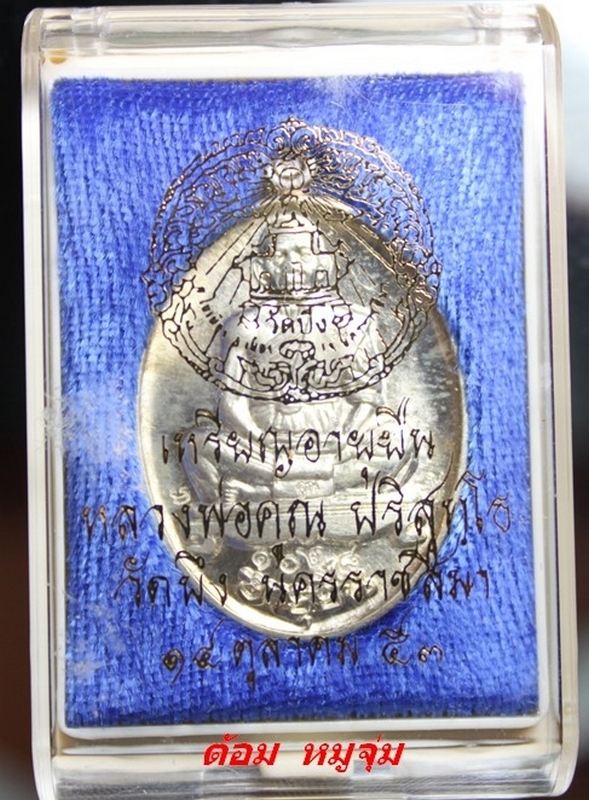 วัดบึง
เหรียญอายุยืน
หลวงพ่อคูณ ปริสุทโธ
วัดบึง นครราชสีมา
๑๕ ตุลาคม ๕๓
ต้อม หมูจุ่ม